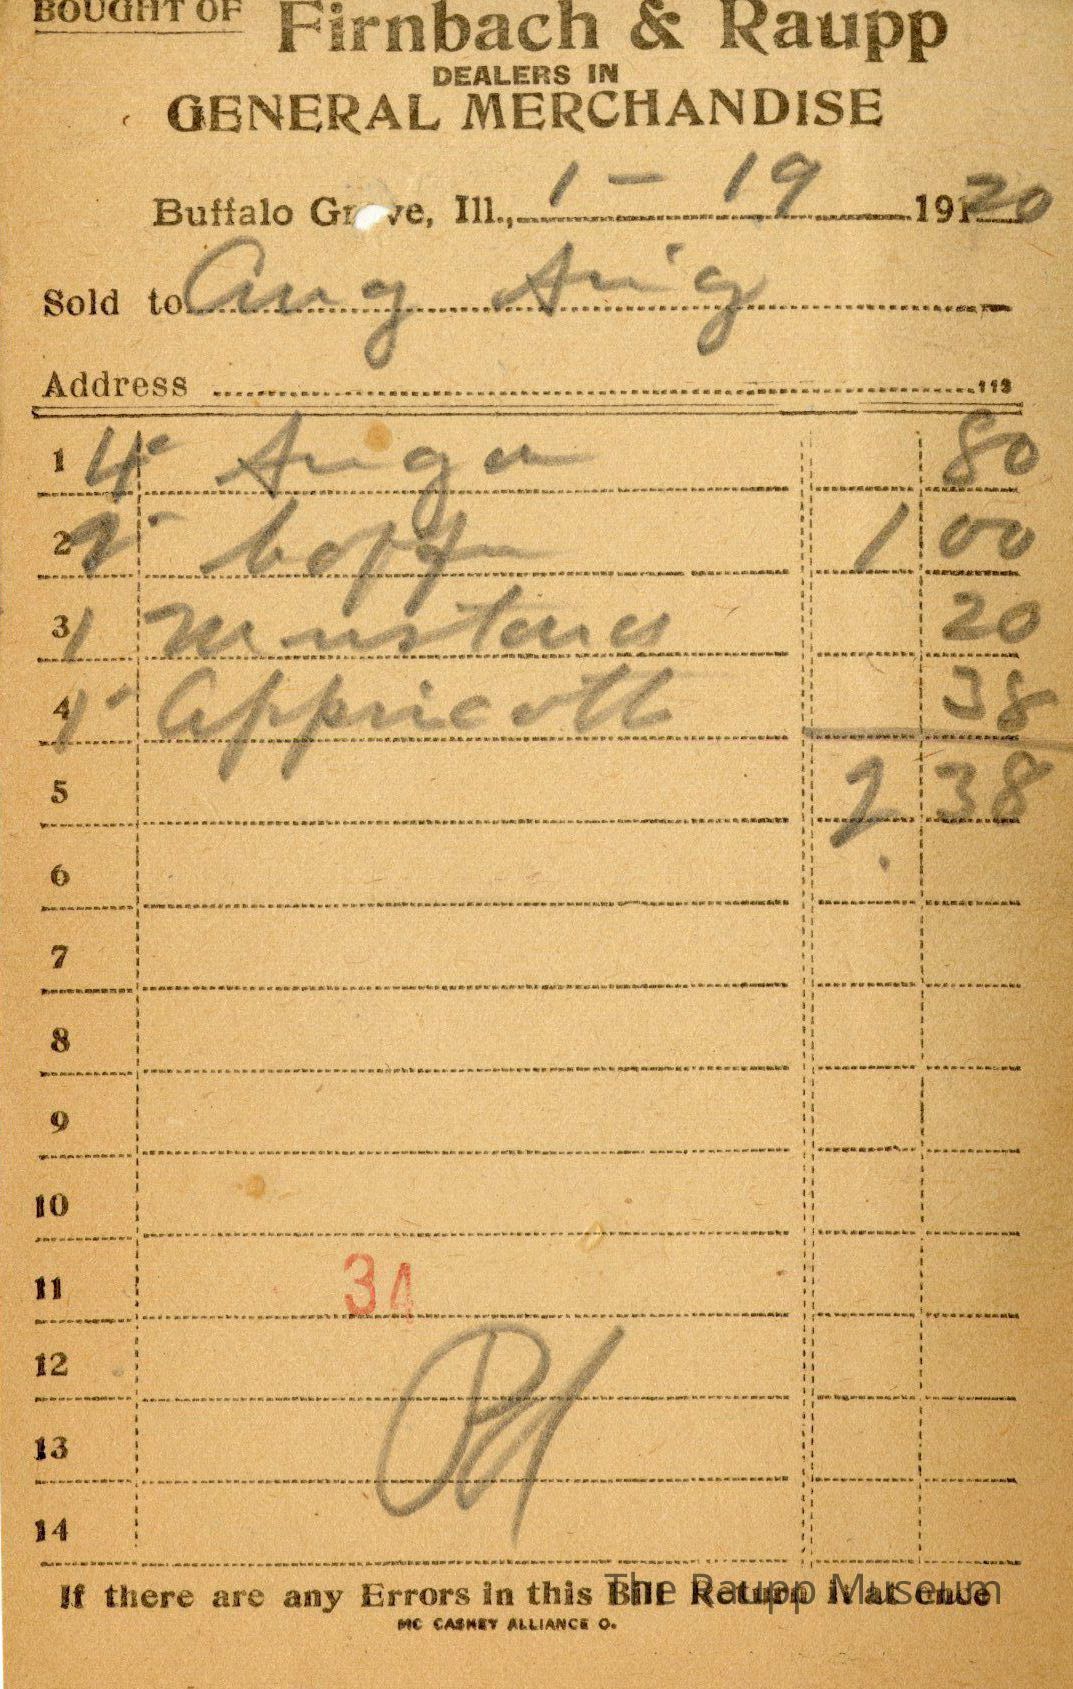 BOUGHT OF Firnbach & Raupp
DEALERS IN
GENERAL MERCHANDISE
Buffalo Grove, Ill., 1 - 19 1920
Sold to Aug
Address
1 4 Suga 80
2 2 1 00
3 1 Mustard 20
4 1 Appricott 38
5 2 38
6
7
8
9
10
11 34
12
13 Pd
14
If there are any Errors in this Bill Return it at once
The Raupp Museum
MC CASKEY ALLIANCE O.